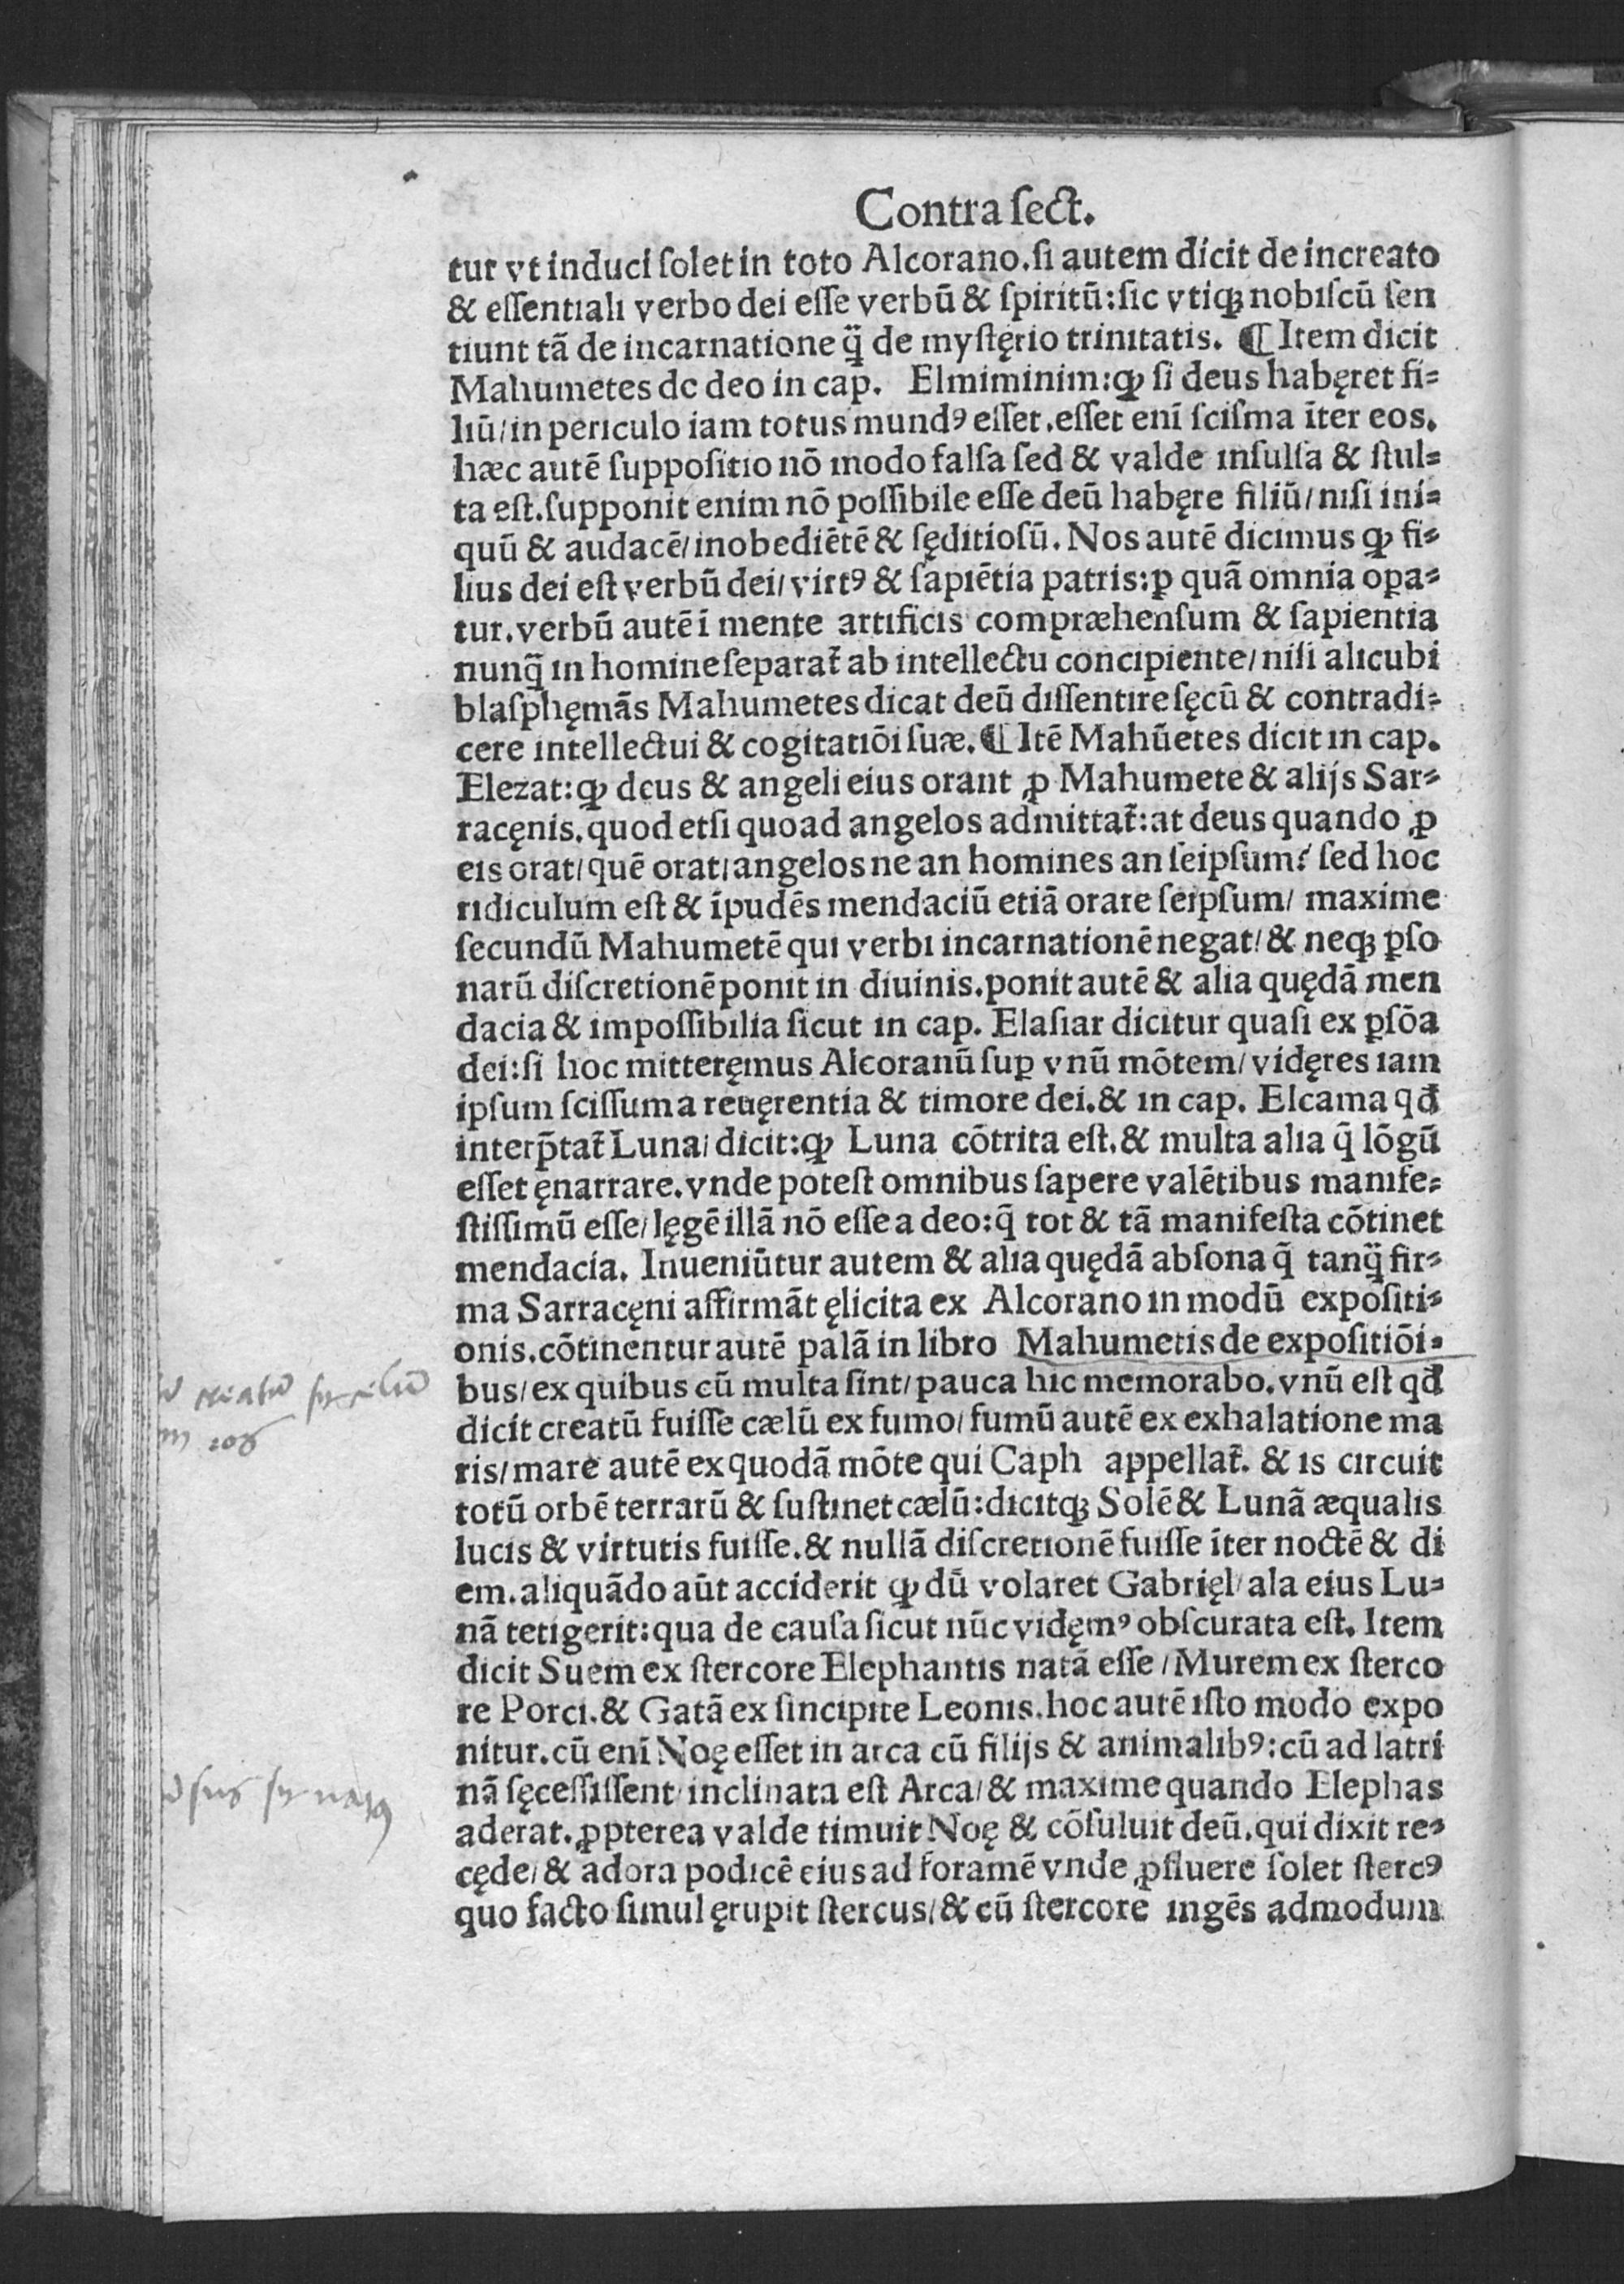 Contra ſect.
tur vt induci ſolet in toto Alcorano. ſi autem dicit de increato
& eſſentiali verbo dei eſſe verbū & ſpiritū: ſic vtiqꝫ nobiſcū ſen
tiunt tā de incarnatione q̄̈ de myſtęrio trinitatis. ¶ Item dicit
Mahumetes de deo in cap. Elmiminim: ꝙ ſi deus habęret fi⸗
liū/ in periculo iam totus mundꝰ eſſet. eſſet enī ſciſma īter eos.
hæc autē ſuppoſitio nō modo falſa ſed & valde inſulſa & ſtul⸗
ta eſt. ſupponit enim nō poſſibile eſſe deū habęre filiū/ niſi ini⸗
quū & audacē/ inobediētē & ſęditioſū. Nos autē dicimus ꝙ fi⸗
lius dei eſt verbū dei/ virtꝰ & ſapiētia patris: ꝑ quā omnia oꝑa⸗
tur. verbū autē ī mente artificis compræhenſum & ſapientia
nunq̄̈ in homine ſeparat᷑ ab intellectu concipiente/ niſi alicubi
blaſphęmās Mahumetes dicat deū diſſentire ſęcū & contradi⸗
cere intellectui & cogitatiōi ſuæ. ¶ Itē Mahūetes dicit in cap.
Elezat: ꝙ deus & angeli eius orant ꝓ Mahumete & alijs Sar⸗
racęnis. quod etſi quoad angelos admittat᷑: at deus quando ꝓ
eis orat/ quē orat/ angelos ne an homines an ſeipſum? ſed hoc
ridiculum eſt & īpudēs mendaciū etiā orare ſeipſum/ maxime
ſecundū Mahumetē qui verbi incarnationē negat/ & neqꝫ ꝑſo
narū diſcretionē ponit in diuinis. ponit autē & alia quędā men
dacia & impoſſibilia ſicut in cap. Elaſiar dicitur quaſi ex ꝑſōa
dei: ſi hoc mitteręmus Alcoranū ſuꝑ vnū mōtem/ vidęres iam
ipſum ſciſſum a reuęrentia & timore dei. & in cap. Elcama qđ
interp̄tat᷑ Luna/ dicit: ꝙ Luna cōtrita eſt. & multa alia q̄ lōgū
eſſet ęnarrare. vnde poteſt omnibus ſapere valētibus manife⸗
ſtiſſimū eſſe/ lęgē illā nō eſſe a deo: q̄ tot & tā manifeſta cōtinet
mendacia. Inueniūtur autem & alia quędā abſona q̄ tanq̄̈ fir⸗
ma Sarracęni affirmāt ęlicita ex Alcorano in modū expoſiti⸗
onis. cōtinentur autē palā in libro Mahumetis de expoſitiōi⸗
bus/ ex quibus cū multa ſint/ pauca hic memorabo. vnū eſt qđ
dicit creatū fuiſſe cælū ex fumo/ fumū autē ex exhalatione ma
ris/ mare autē ex quodā mōte qui Caph appellat᷑. & is circuit
totū orbē terrarū & ſuſtinet cælū: dicitqꝫ Solē & Lunā æqualis
lucis & virtutis fuiſſe. & nullā diſcretionē fuiſſe īter noctē & di
em. aliquādo aūt acciderit ꝙ dū volaret Gabrięl/ ala eius Lu⸗
nā tetigerit: qua de cauſa ſicut nūc vidęmꝰ obſcurata eſt. Item
dicit Suem ex ſtercore Elephantis natā eſſe/ Murem ex ſterco
re Porci. & Gatā ex ſincipite Leonis. hoc autē iſto modo expo
nitur. cū enī Noę eſſet in arca cū filijs & animalibꝰ: cū ad latri
nā ſęceſſiſſent/ inclinata eſt Arca/ & maxime quando Elephas
aderat. ꝓpterea valde timuit Noę & cōſuluit deū. qui dixit re⸗
cęde/ & adora podicē eius ad foramē vnde ꝓfluere ſolet ſtercꝰ
quo facto ſimul ęrupit ſtercus/ & cū ſtercore ingēs admodum